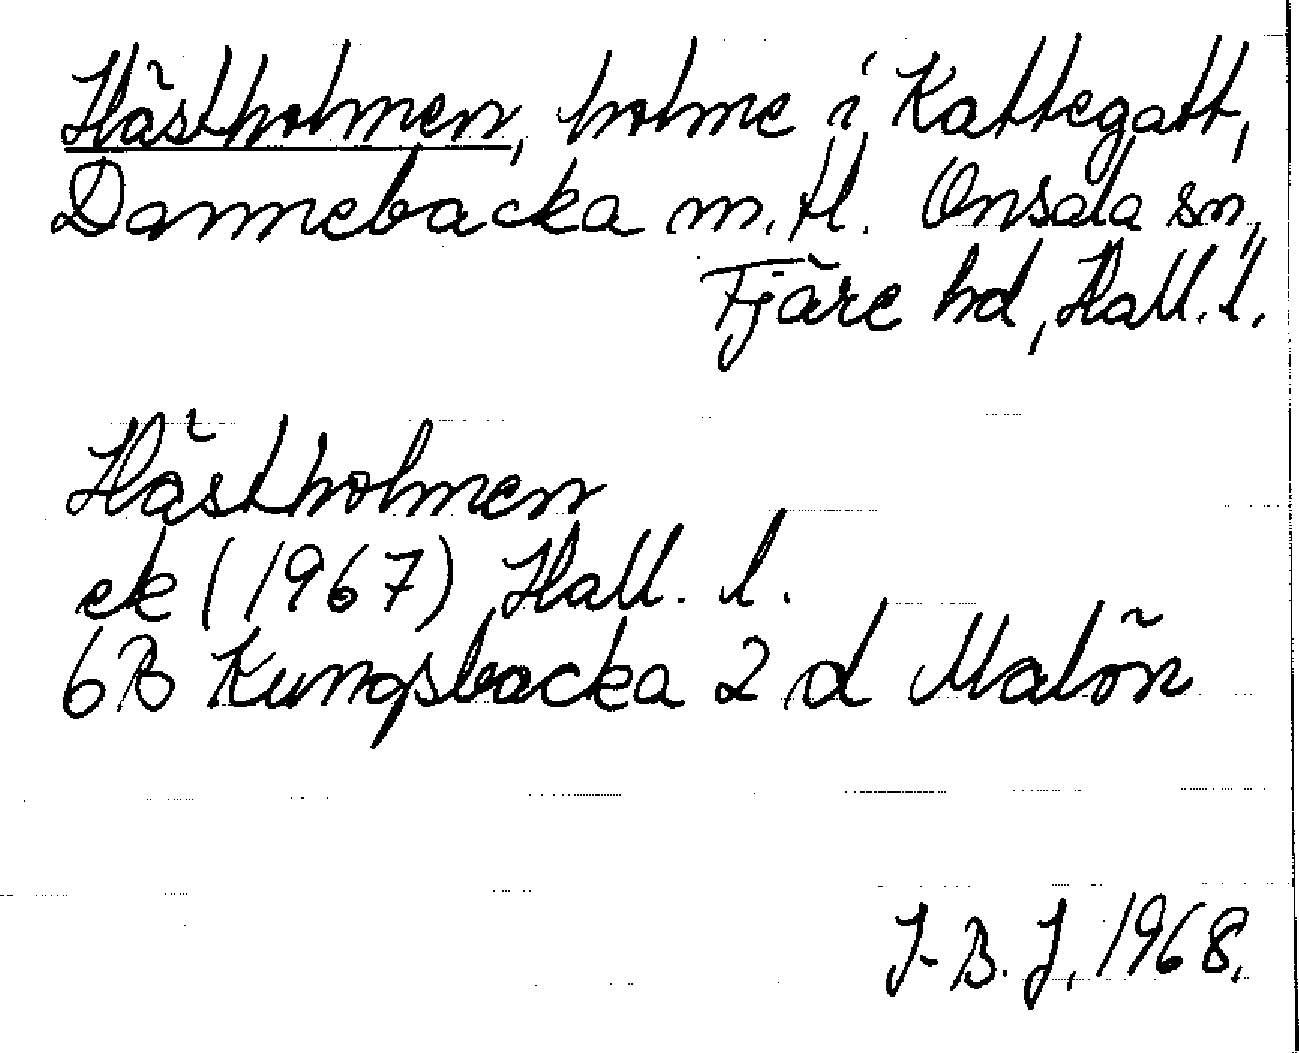 Hästholmen, holme i Kattegatt,
Dannebacka m.fl. Onsala sn,
Fjäre hd, Hall. l.
Hästholmen
ek (1967) Hall. l.
6B Kungsbacka 2 d Malön
J-B. J, 1968.